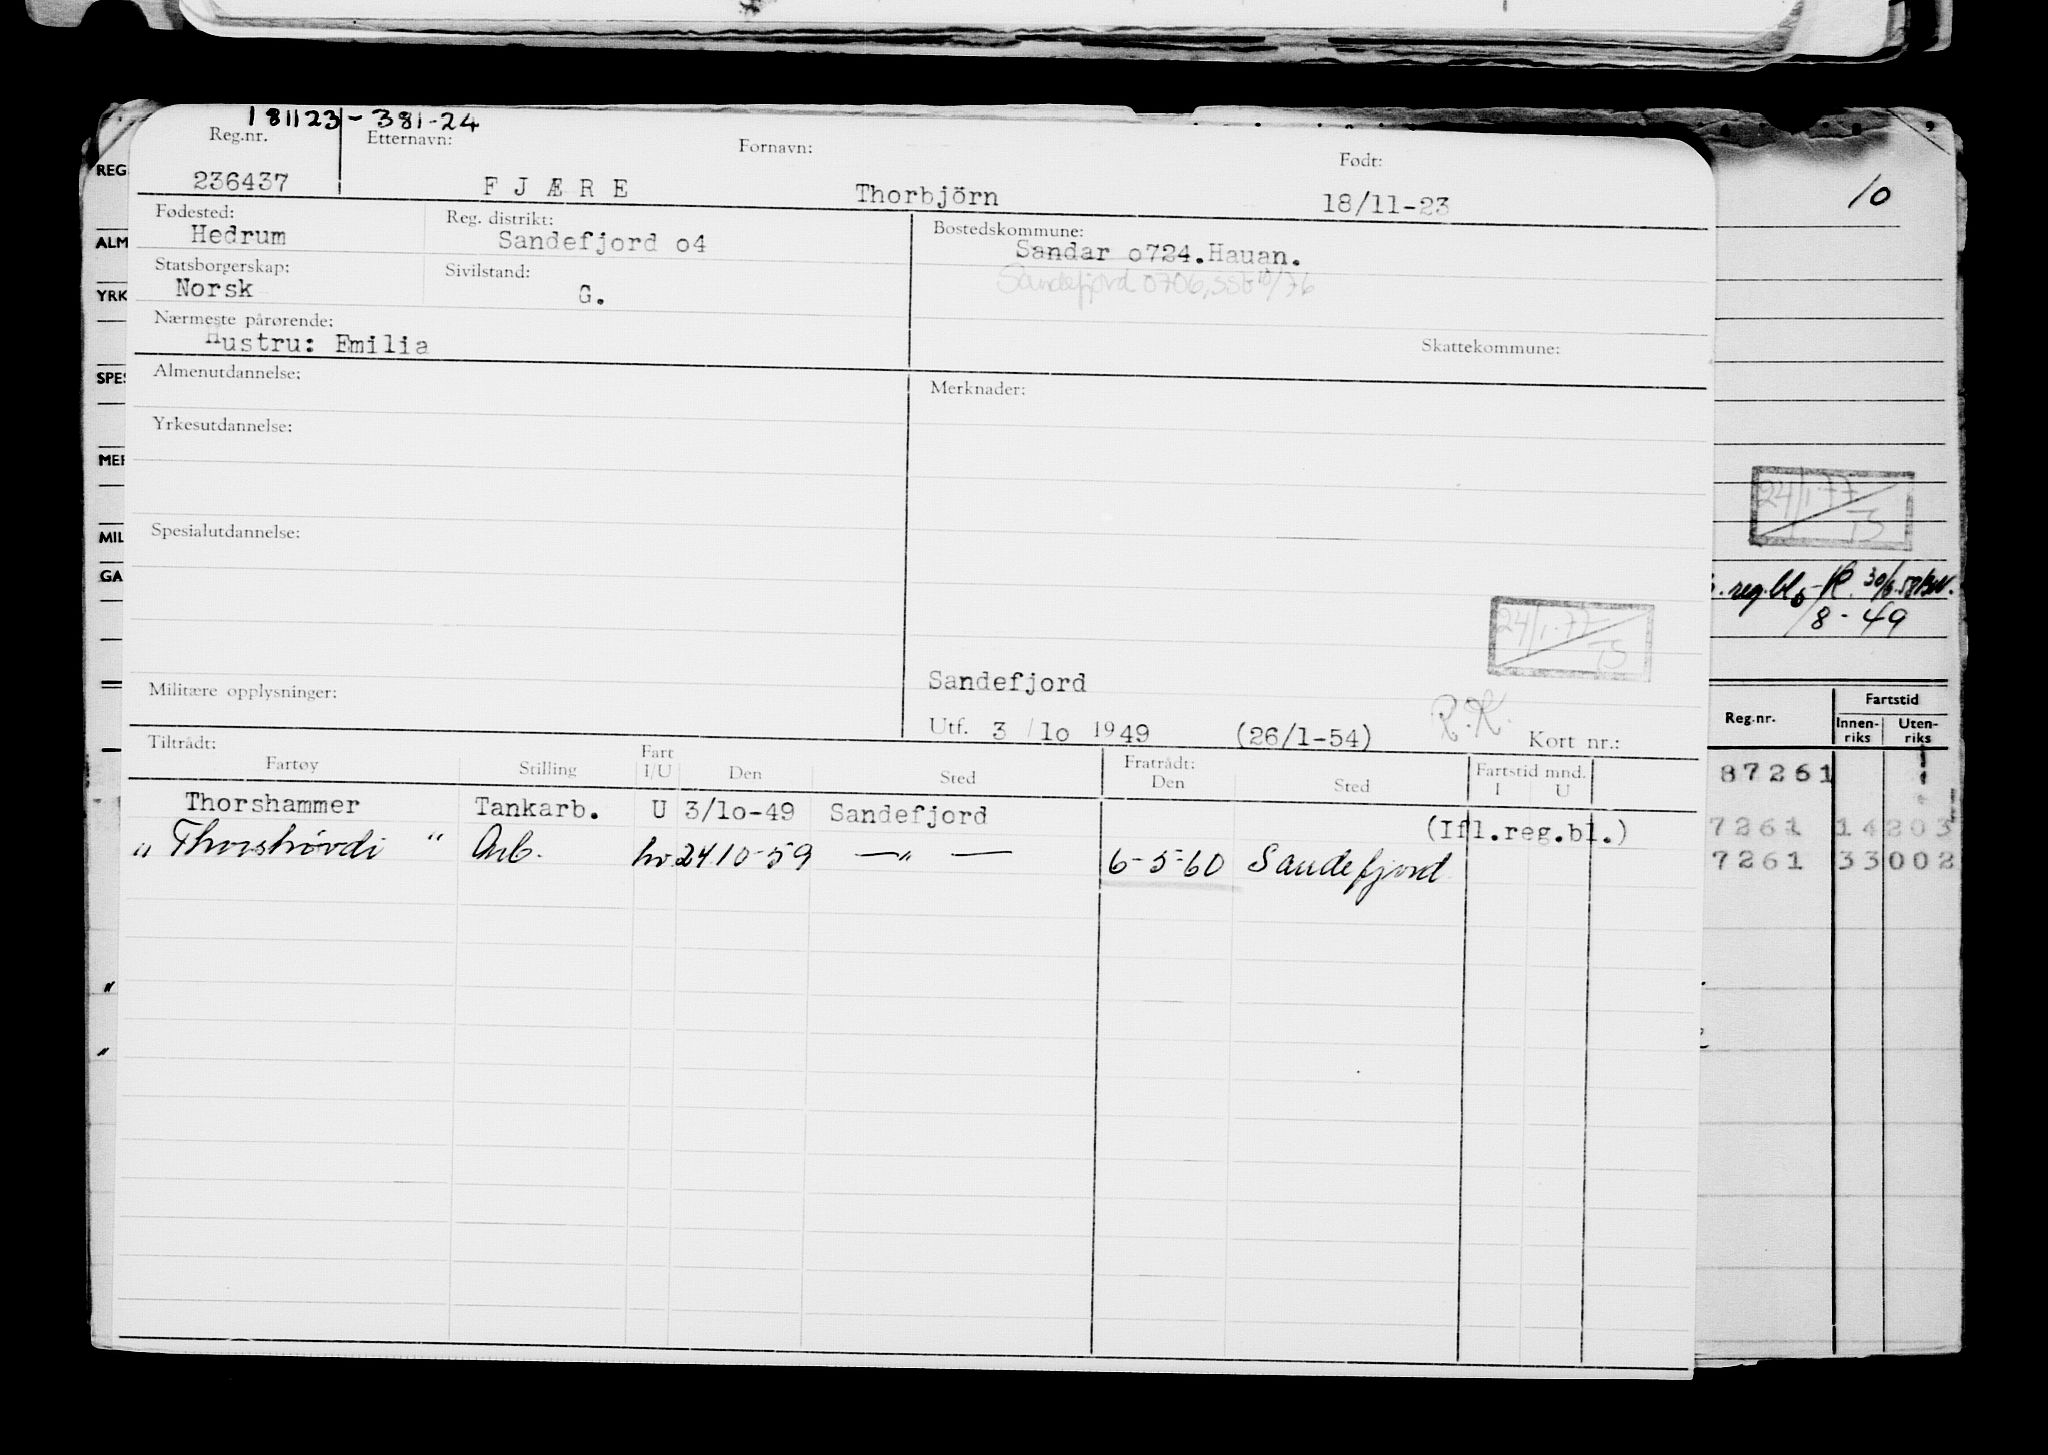 181123-381-24
Reg.nr. Etternavn: Fornavn: Født:
236437 FJÆRE Thorbjörn 18/11-23
Fødested: Reg. distrikt: Bostedskommune:
Hedrum Sandefjord o4 Sandar o724.Hauan.
Statsborgerskap: Sivilstand: Sandefjord 0706,
Norsk G.
Nærmeste pårørende: Skattekommune:
Hustru: Emilia
Almenutdannelse: Merknader:
Yrkesutdannelse:
Spesialutdannelse:
24/1-77
TS
Sandefjord
Militære opplysninger:
Utf. 3/lo 1949 (26/1-54) R.K. Kort nr.:
Tiltrådt: Fratrådt:
Fartøy Stilling Fart I/U Den Sted Den Sted Fartstid mnd. I U
Thorshammer Tankarb. U 3/lo-49 Sandefjord (Ifl.reg.bl.)
" Thorshøvdi " Arb. hv 24.10-59 —"— 6-5-60 Sandefjord
REG
ALM
YRK
SPES
MER
MIL
GA
"
"
10
24/1-77
TS
reg.bl.
/8-49
Reg.nr. Fartstid
Innen-riks Uten-riks
87261
7261 14203
7261 33002